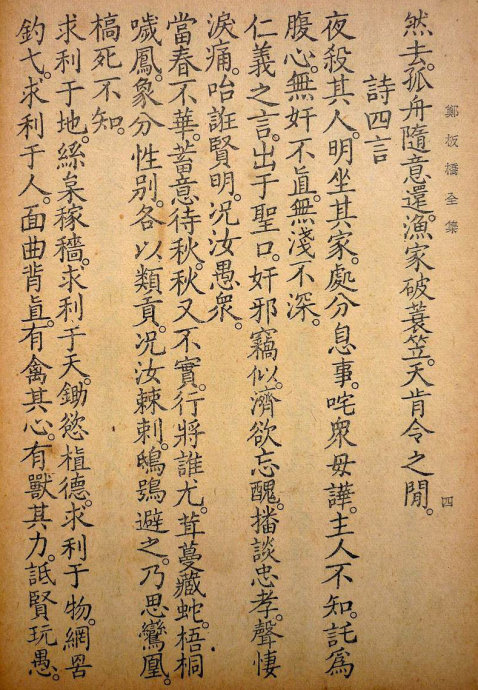 鄭板橋全集
四
然去。孤舟隨意還。漁家破蓑笠。天肯令之閒。
詩四言
夜殺其人。明坐其家。處分息事。咤衆毋譁。主人不知。託爲
腹心。無奸不眞。無淺不深。
仁義之言。出于聖口。奸邪竊似。濟欲忘醜。播談忠孝。聲悽
淚痛。咍誑賢明。况汝愚衆。
當春不華。蓄意待秋。秋又不實。行將誰尤。茸蔓藏蛇。梧桐
噦鳳。象分性別。各以類貢。况汝棘刺。鴟鴞避之。乃思鸞凰。
槁死不知。
求利于地。絲枲稼穡。求利于天。鋤慾植德。求利于物。網罟
釣弋。求利于人。面曲背眞。有禽其心。有獸其力。詆賢玩愚。